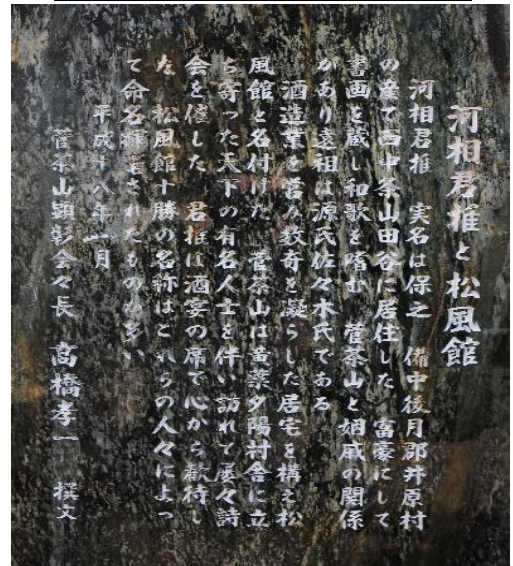 河相君推と松風館
河相君推 実名は保之 備中後月郡井原村
の産で西中条山田谷に居住した 富豪にして
書画を蔵し和歌を嗜む 菅茶山と姻戚の関係
があり遠祖は源氏佐々木氏である
酒造業を営み数奇を凝らした居宅を構え松
風館と名付けた 菅茶山は黄葉夕陽村舎に立
ち寄った天下の有名人士を伴い訪れて屡々詩
会を催した 君推は酒宴の席で心から歓待し
た 松風館十勝の名称はこれらの人々によっ
て命名揮毫されたものが多い
平成十八年一月
菅茶山顕彰会々長 高橋孝一 撰文